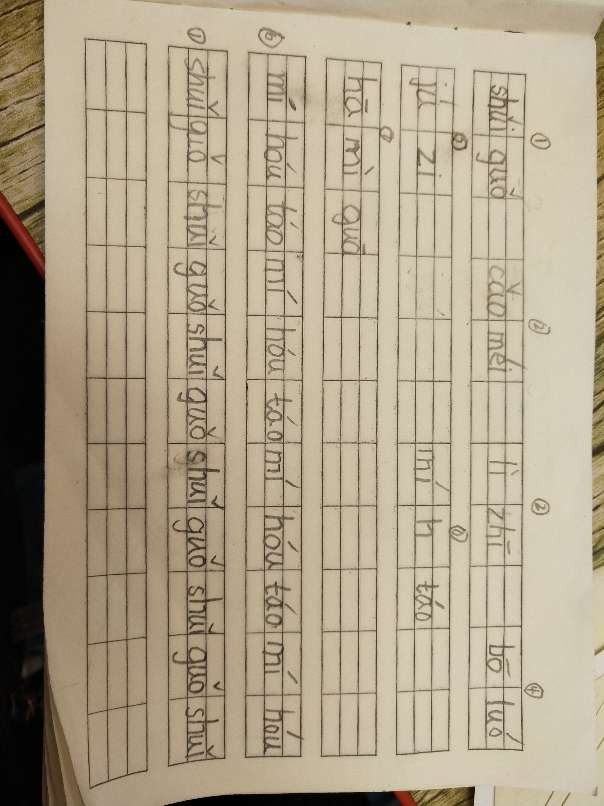 ① ② ② ④
shuǐ guǒ cǎo méi lì zhī bō luó
⑥
jú zi mí h táo
hā mì guā
⑥ mí hóu táo mí hóu táo mí hóu táo mí hóu
① shuǐ guǒ shuǐ guǒ shuǐ guǒ shuǐ guǒ shuǐ guǒ shuǐ